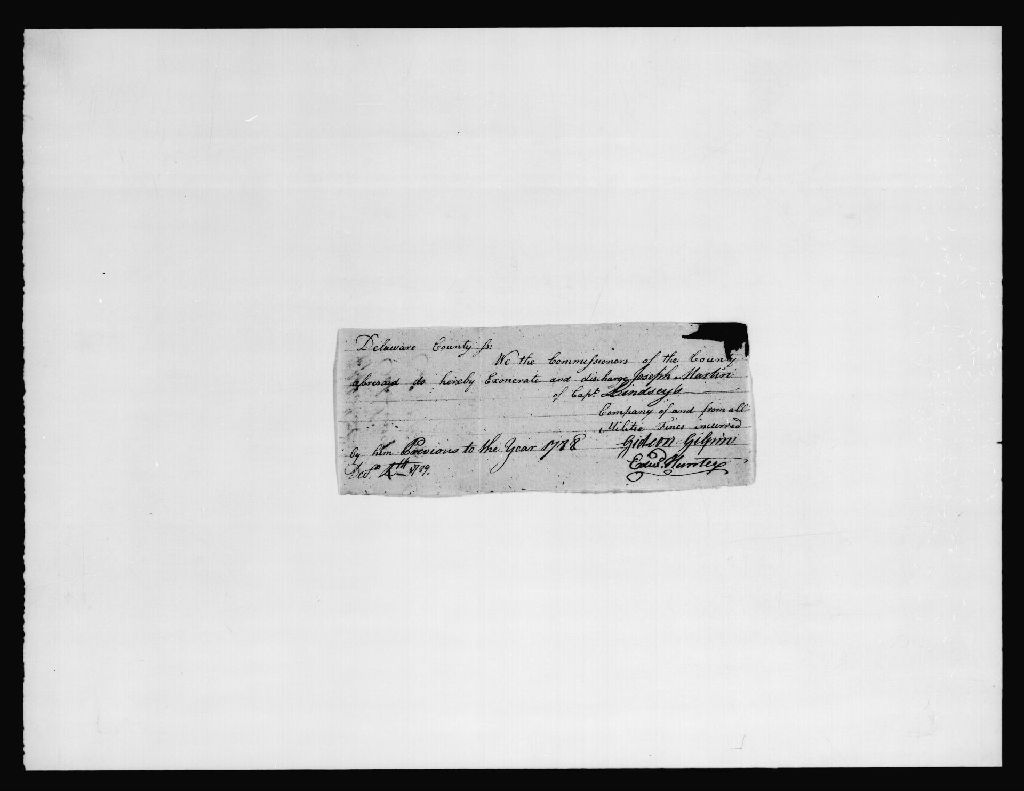 Delaware County ss:
We the Commissioners of the County
aforesaid do hereby Exonerate and discharge Joseph Martin
of Capt. Lindseys
Company of and from all
Militia Fines incurred
by him Previous to the Year 1788
Gideon Gilpin
Decr. 4th 1789.
Edwd. Hunter